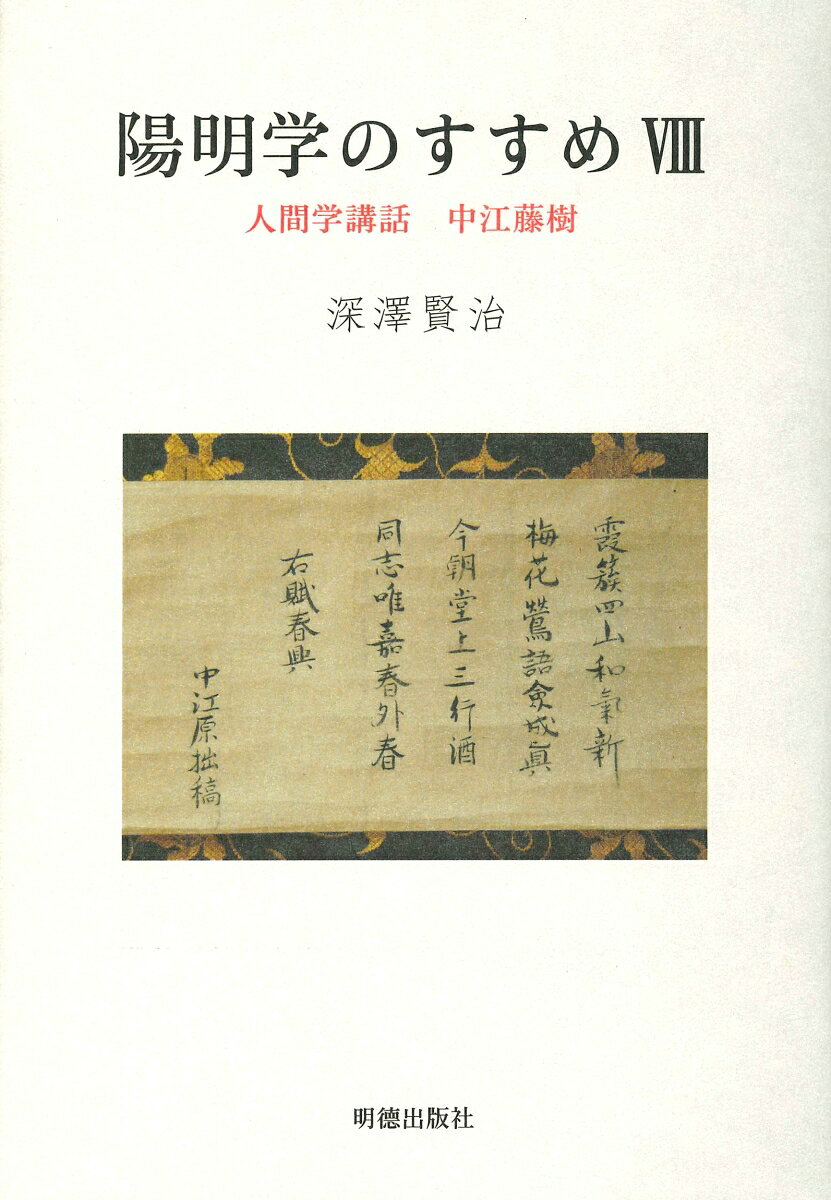 陽明学のすすめ Ⅷ
人間学講話 中江藤樹
深澤賢治
霞簇四山和氣新
梅花鶯語僉成眞
今朝堂上三行酒
同志唯嘉春外春
右賦春興
中江原拙稿
明德出版社